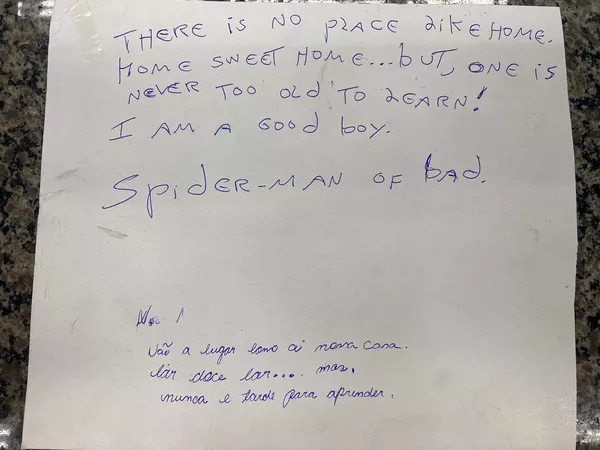 THERE IS NO PLACE LIKE HOME.
HOME SWEET HOME... BUT, ONE IS
NEVER TOO OLD TO LEARN!
I AM A GOOD BOY.
SPIDER-MAN OF BAD.
Não a lugar como a nossa casa.
lar doce lar... mas,
nunca e tarde para aprender.